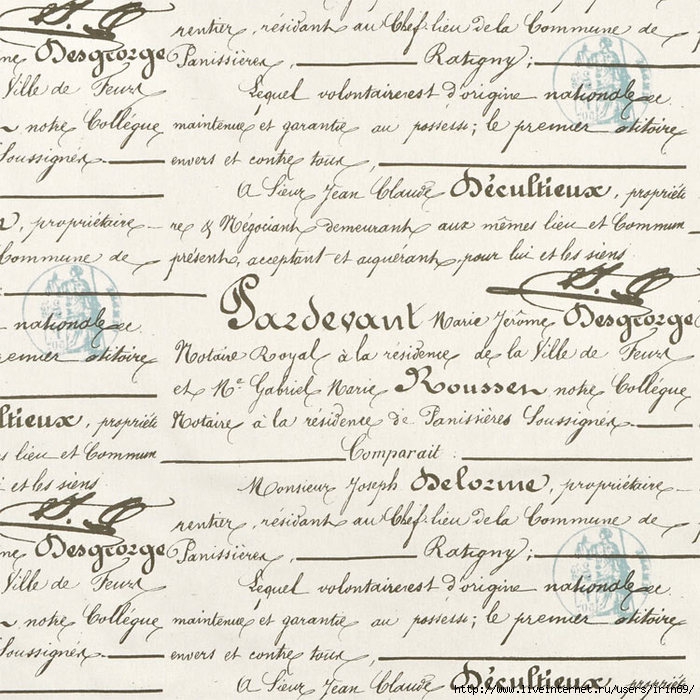 rentier, résidant au Chef-lieu de la Commune de
Desgeorge Panissières, Ratigny;
Ville de Feurs Lequel volontaire est d'origine nationale
notre Collégue maintenue et garantie au possessi; le premier
Soussignés envers et contre tous,
A Sieur Jean Claude Décultieux, propriété
propriétaire re & Négociant demeurant aux mêmes lieu et Commun
Commune de présent, acceptant et aquérant pour lui et les siens
Pardevant Marie Jérôme Desgeorge
nationale Notaire Royal à la résidence de la Ville de Feurs
premier et Me. Gabriel Marie Roussen notre Collégue
Décultieux, propriété Notaire à la résidence de Panissières Soussignés
lieu et Commun Comparait
et les siens Monsieur Joseph Delorme, propriétaire
rentier, résidant au Chef-lieu de la Commune de
Desgeorge Panissières, Ratigny;
Ville de Feurs Lequel volontaire est d'origine nationale
notre Collégue maintenue et garantie au possessi; le premier
Soussignés envers et contre tous,
A Sieur Jean Claude Décultieux, propriété
http://www.liveinternet.ru/users/irinbv/